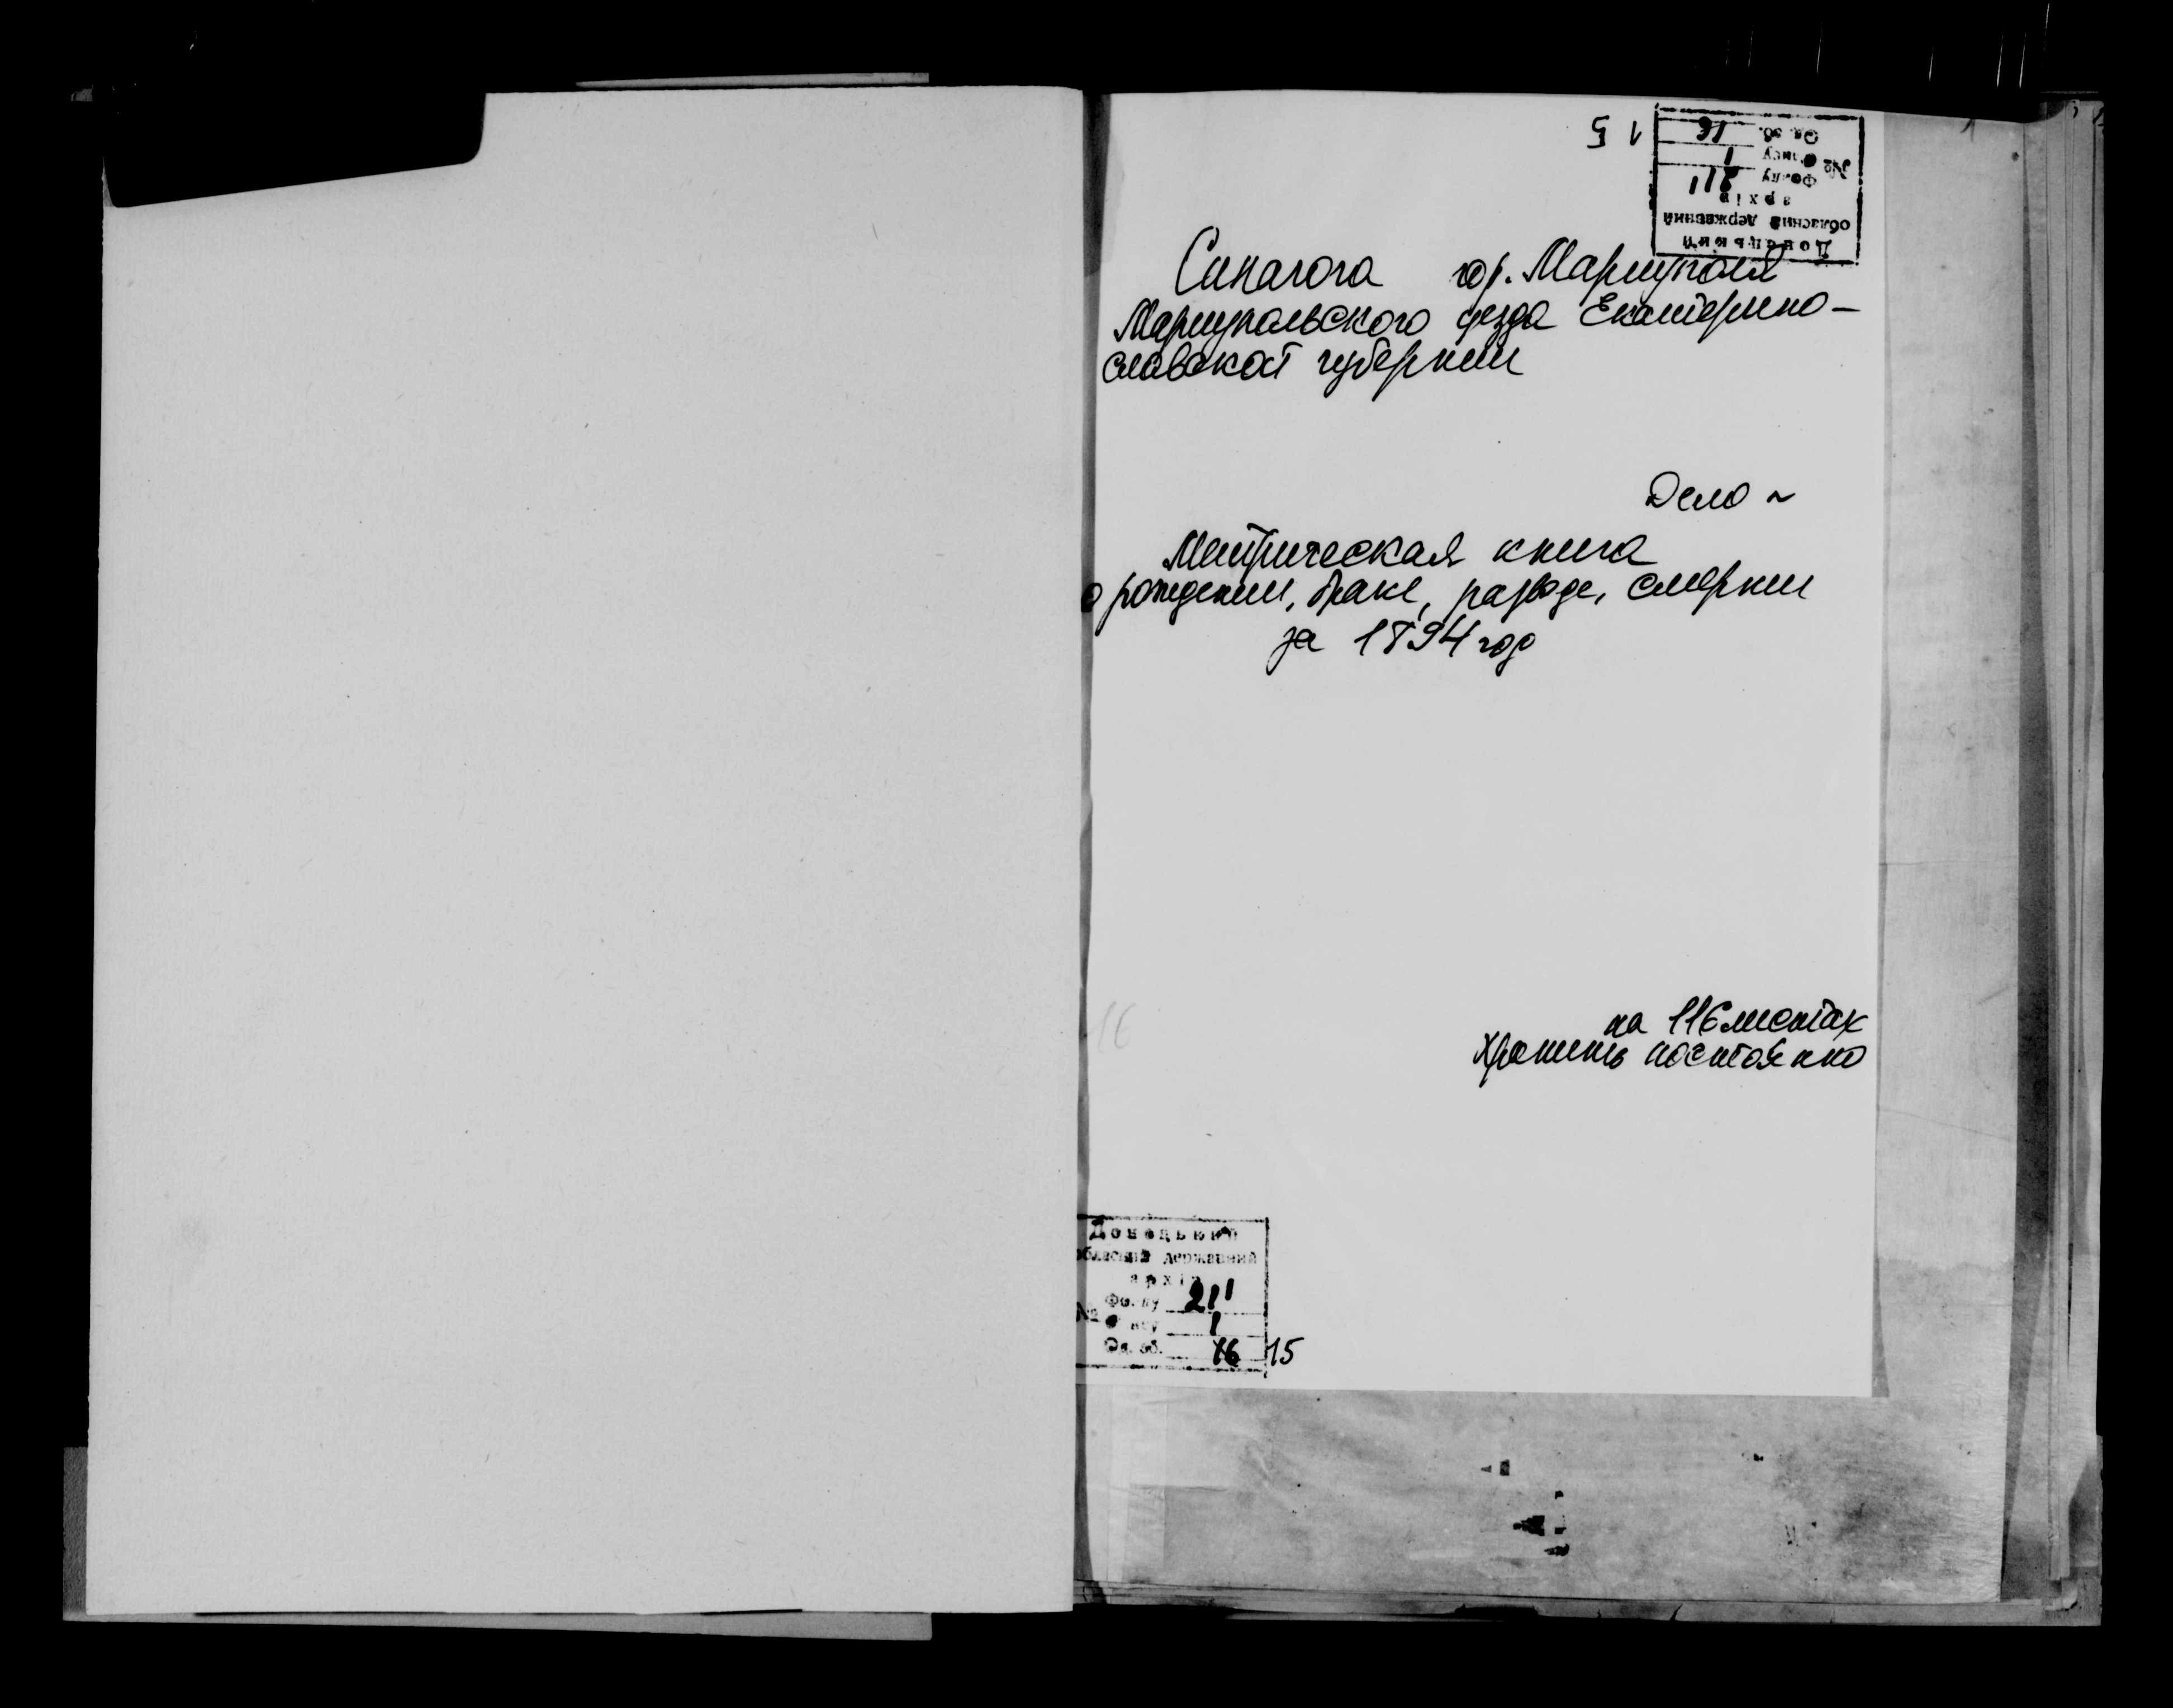 15
Донецький
обласний державний
архів
№ Фонду 211
Опису 1
Од. зб. 16
Синагога гор. Мариуполя
Мариупольского уезда Екатерино-
славской губернии
Дело ~
Метрическая книга
о рождении, браке, разводе, смерти
за 1894 год
16
на 116 листах
Хранить постоянно
Донецький
обласний державний
архів
Фонду 211
№ Опису 1
Од. зб. 16 15